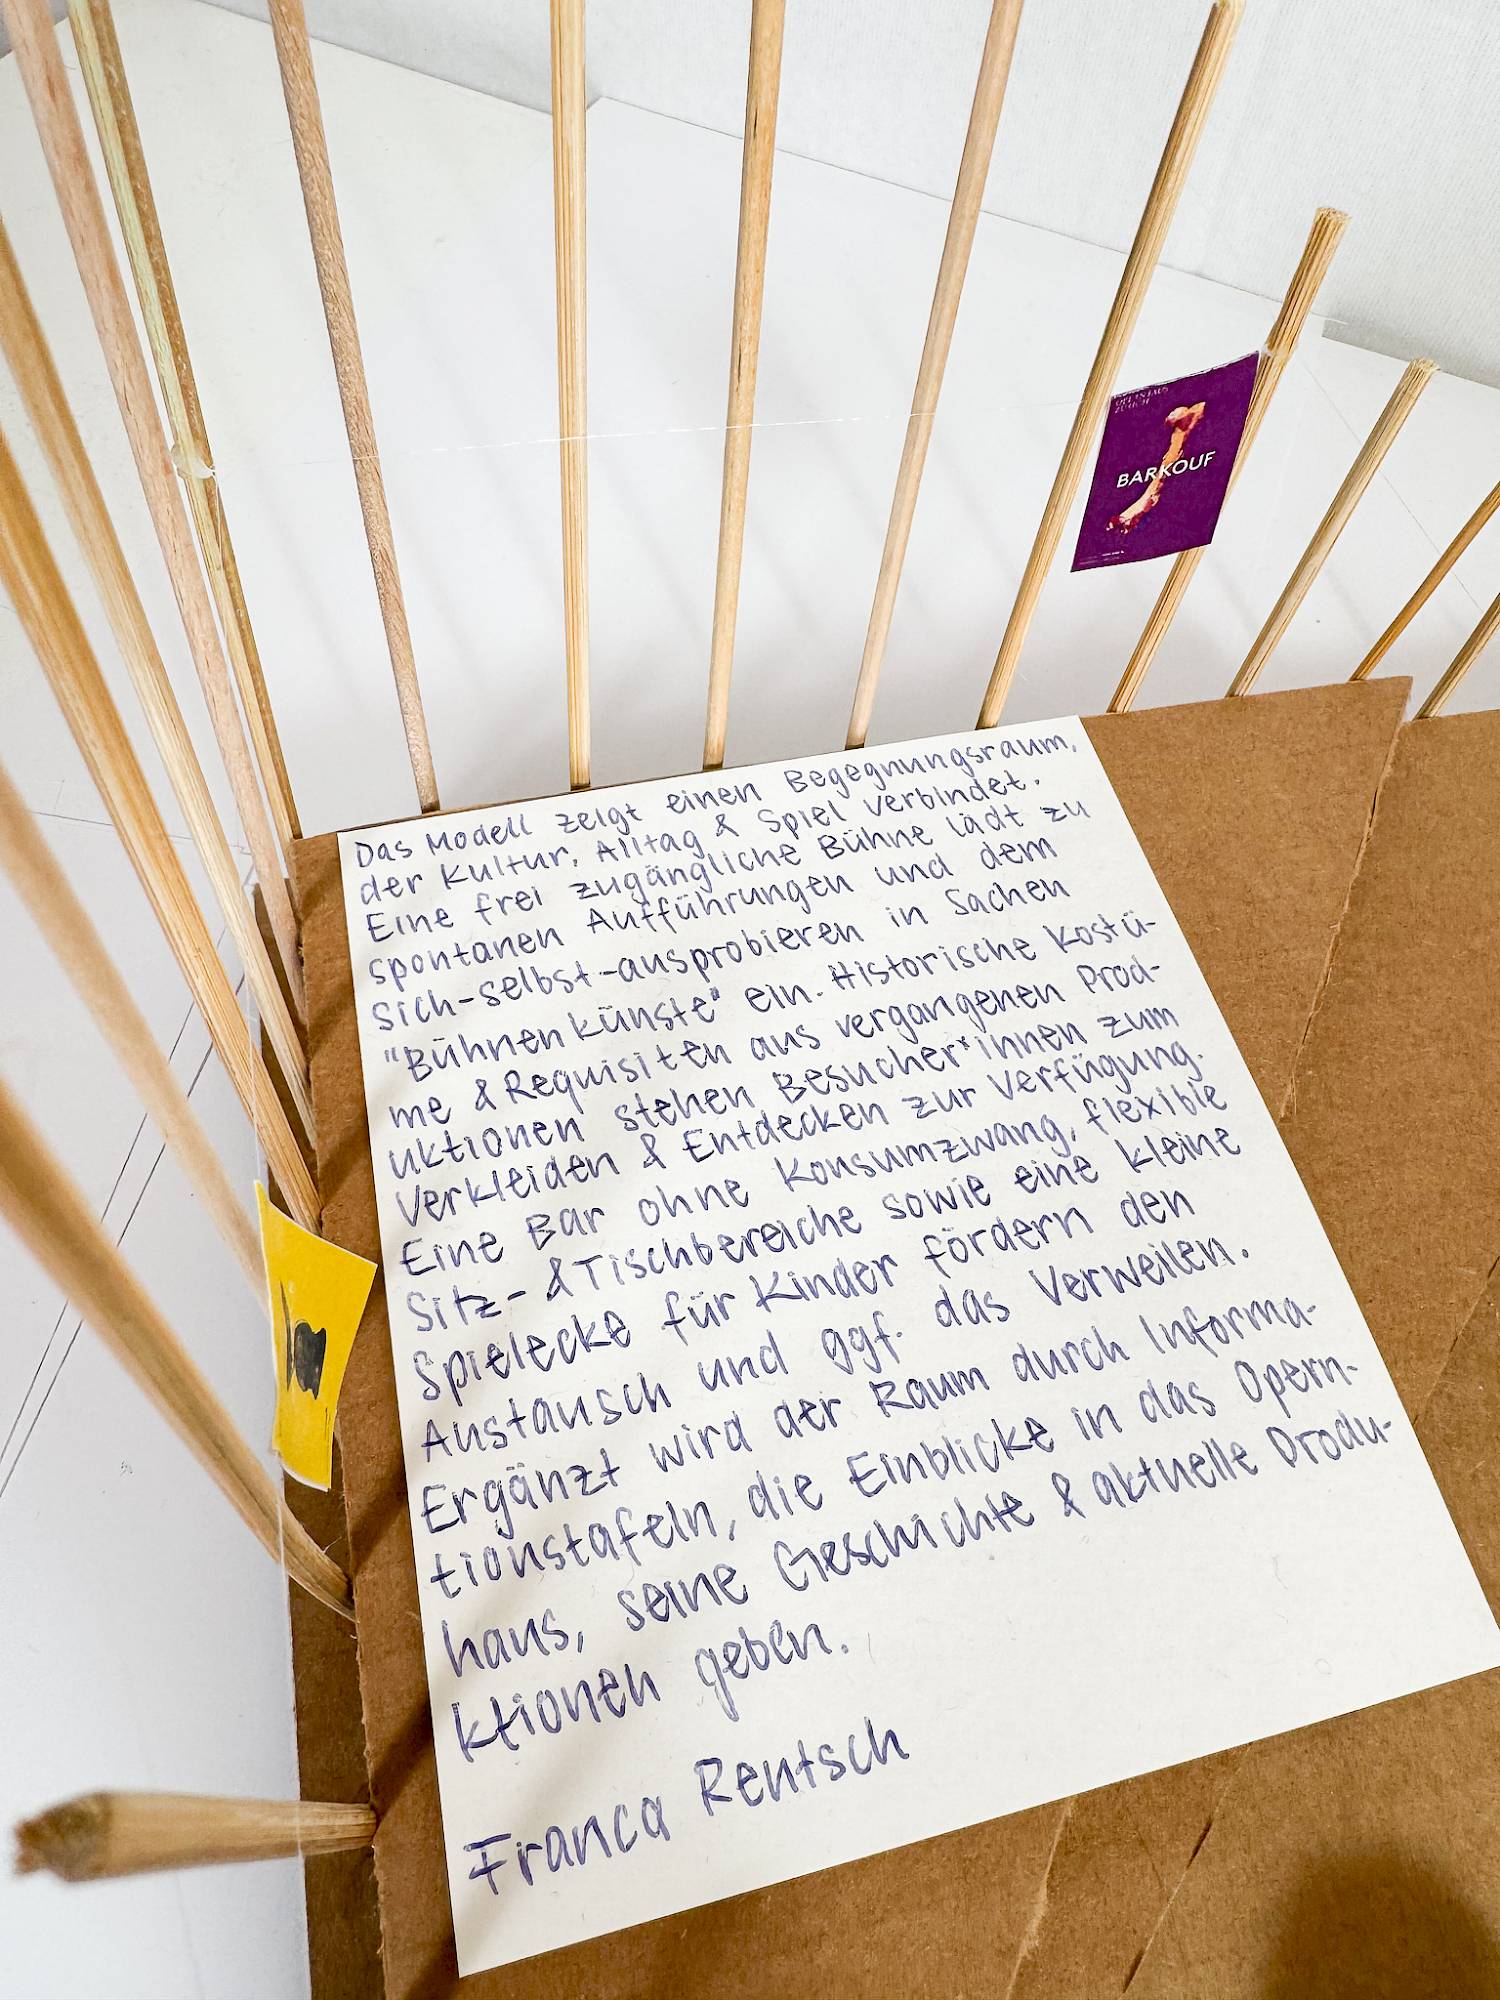 OPERNHAUS
ZÜRICH
BARKOUF
Das Modell zeigt einen Begegnungsraum,
der Kultur, Alltag & Spiel verbindet.
Eine frei zugängliche Bühne lädt zu
spontanen Aufführungen und dem
sich-selbst-ausprobieren in Sachen
"Bühnenkünste" ein. Historische Kostü-
me & Requisiten aus vergangenen Prod-
uktionen stehen Besucher*innen zum
Verkleiden & Entdecken zur Verfügung.
Eine Bar ohne Konsumzwang, flexible
Sitz- & Tischbereiche sowie eine kleine
Spielecke für Kinder fördern den
Austausch und ggf. das Verweilen.
Ergänzt wird der Raum durch Informa-
tionstafeln, die Einblicke in das Opern-
haus, seine Geschichte & aktuelle Produ-
ktionen geben.
Franca Rentsch